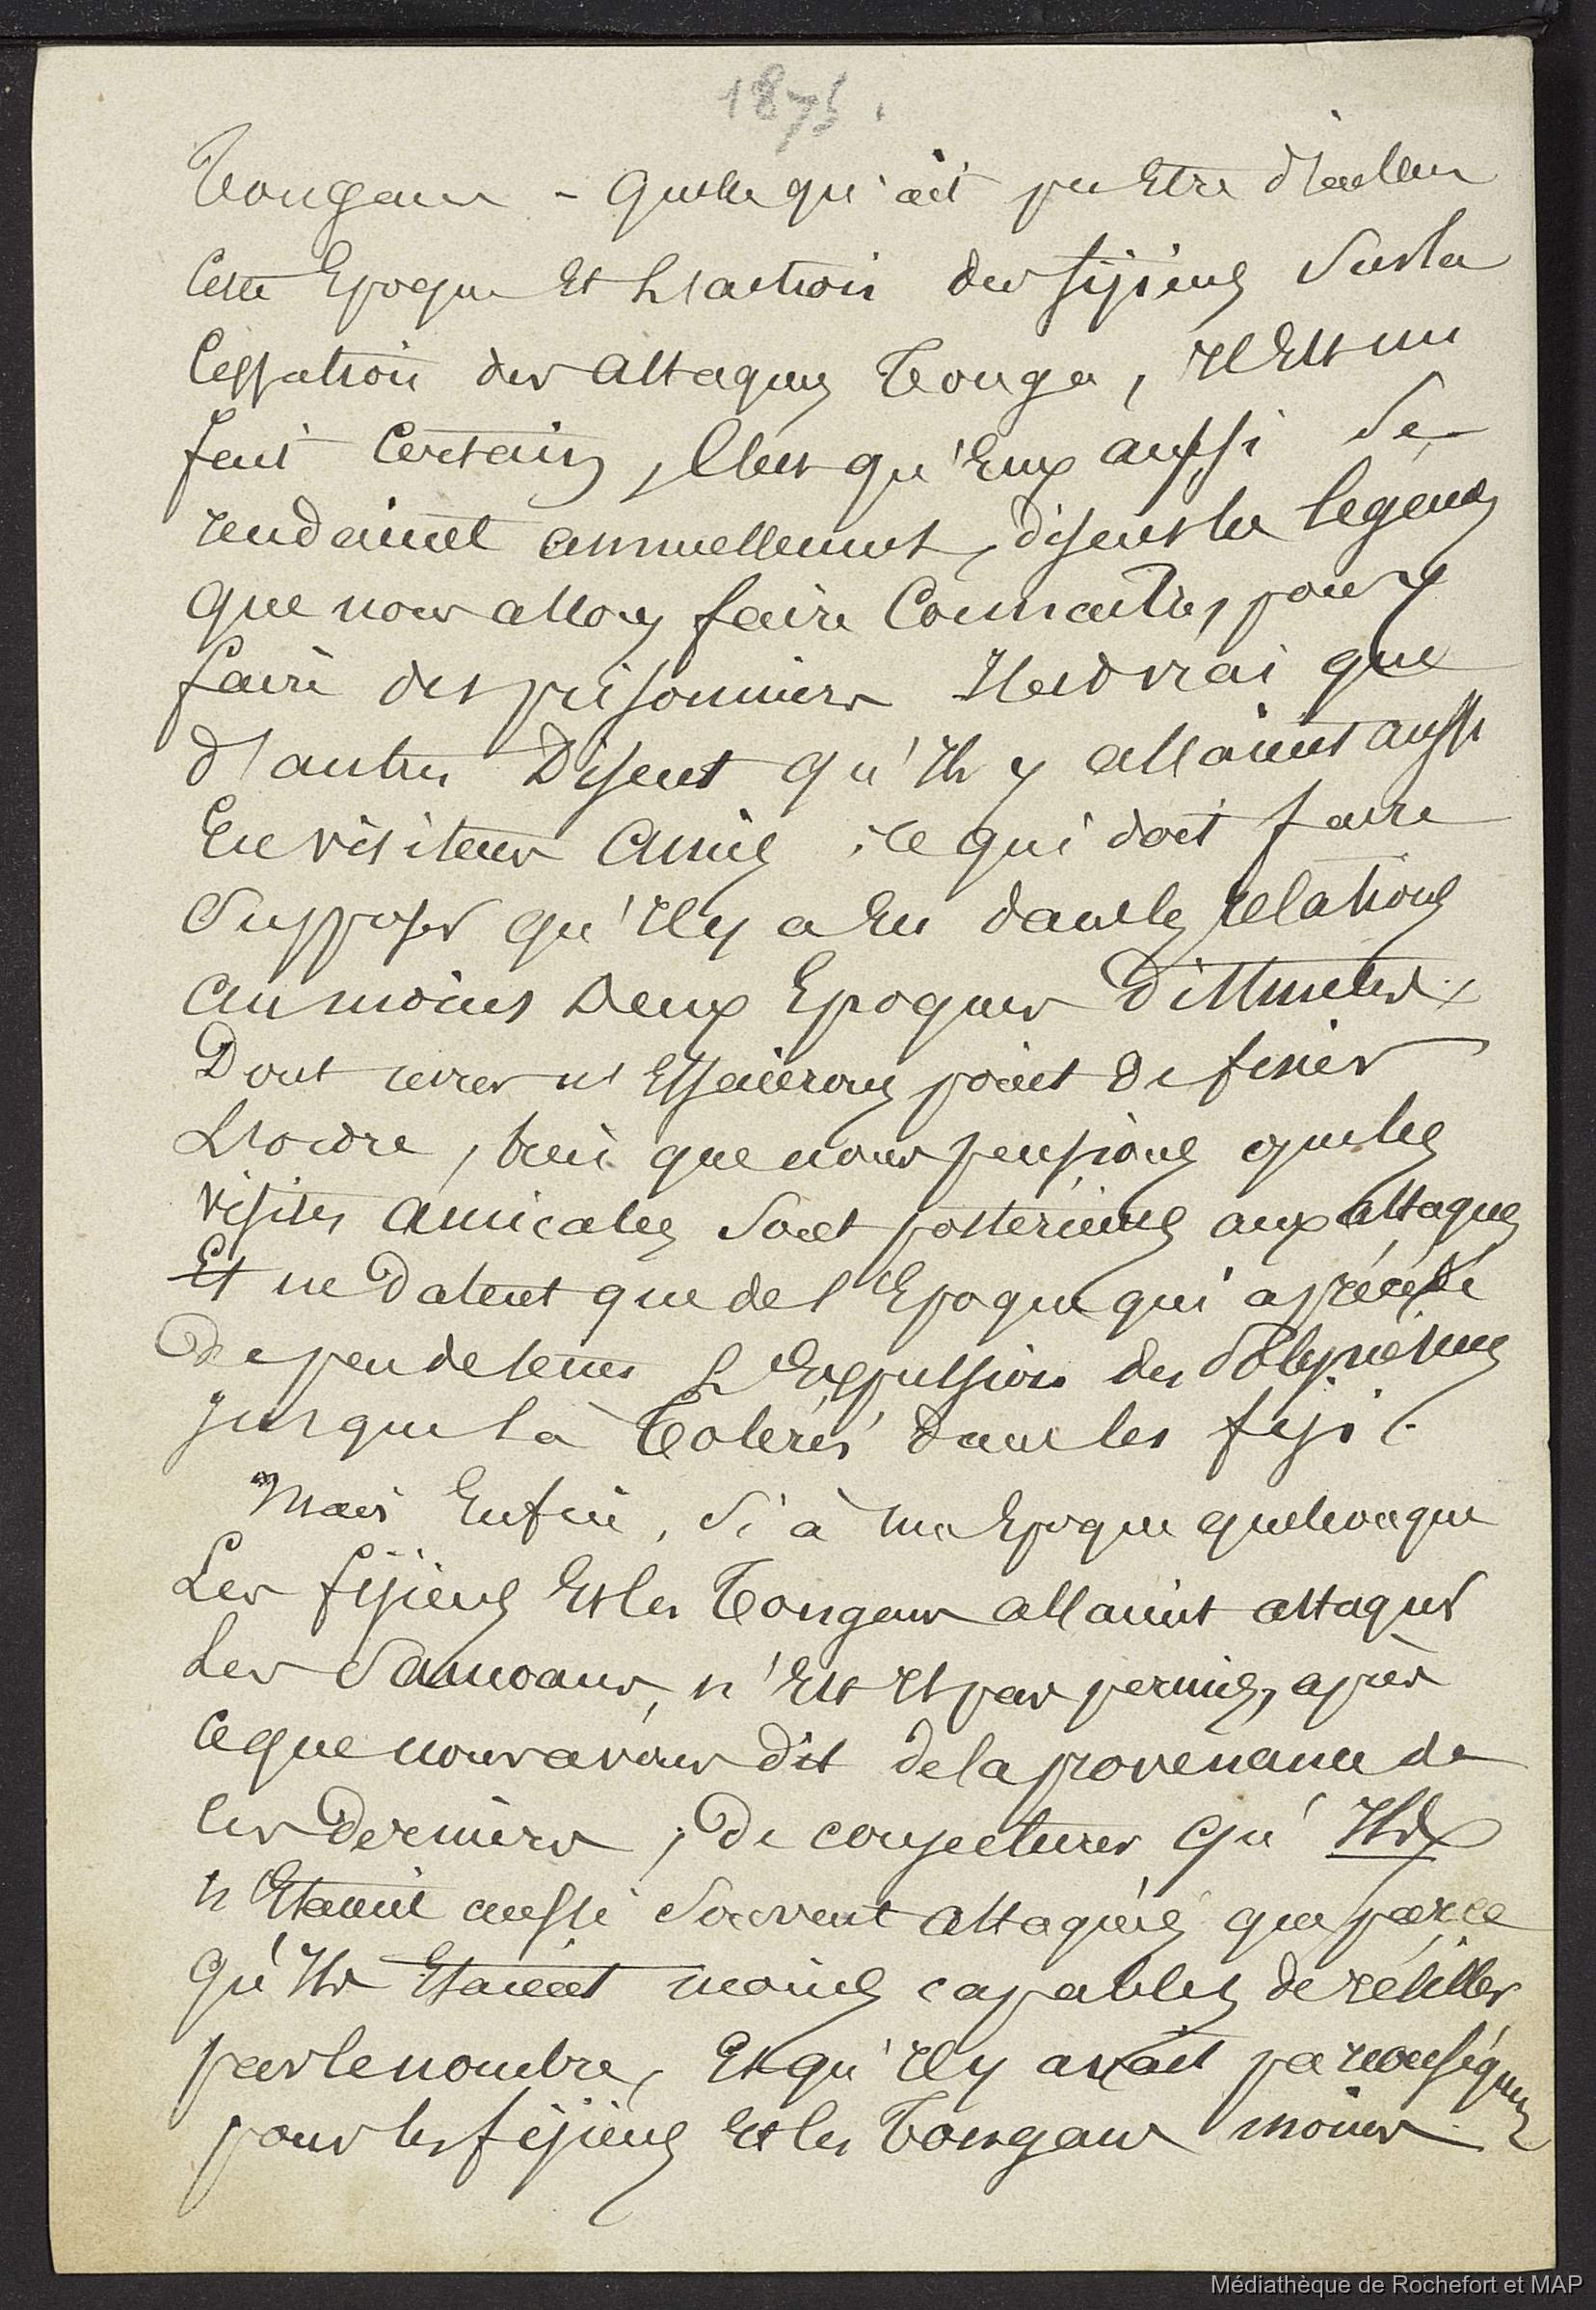 1875.
Tongans - Quelle qu'ait pu être d'ailleurs
cette Epoque et L'action des fijiens sur la
Cessation des attaques Tonga, il Est un
fait Certain, c'est qu'Eux aussi se
rendaient annuellement, disent les legendes
que nous allons faire Connaitre, pour y
faire des prisonniers Il est vrai que
d'autres Disent qu'Ils y allaient aussi
En visiteurs Amis, ce qui doit faire
Supposer qu'Il y a Eu dans les relations
au moins Deux Epoques Distinctes
Dont nous n'Essaierons point de fixer
L'ordre, bien que nous pensions que les
visites amicales sont postérieures aux attaques
Et ne Datent que de l'Epoque qui a précédé
De peu de tems L'Expulsion des Polynésiens
jusque là Tolérés dans les fiji.
Mais Enfin, si à une Epoque quelconque
Les fijiens Et les Tongans allaient attaquer
Les Samoans, n'Est Il pas permis, après
ce que nous avons dit de la provenance de
ces Derniers, De conjecturer qu'Ils
n'Etaient aussi souvent attaqués que parce
qu'Ils Etaient moins capables de résister
par le nombre, Et qu'Il y avait par conséquent
pour les fijiens Et les Tongans moins
Médiathèque de Rochefort et MAP